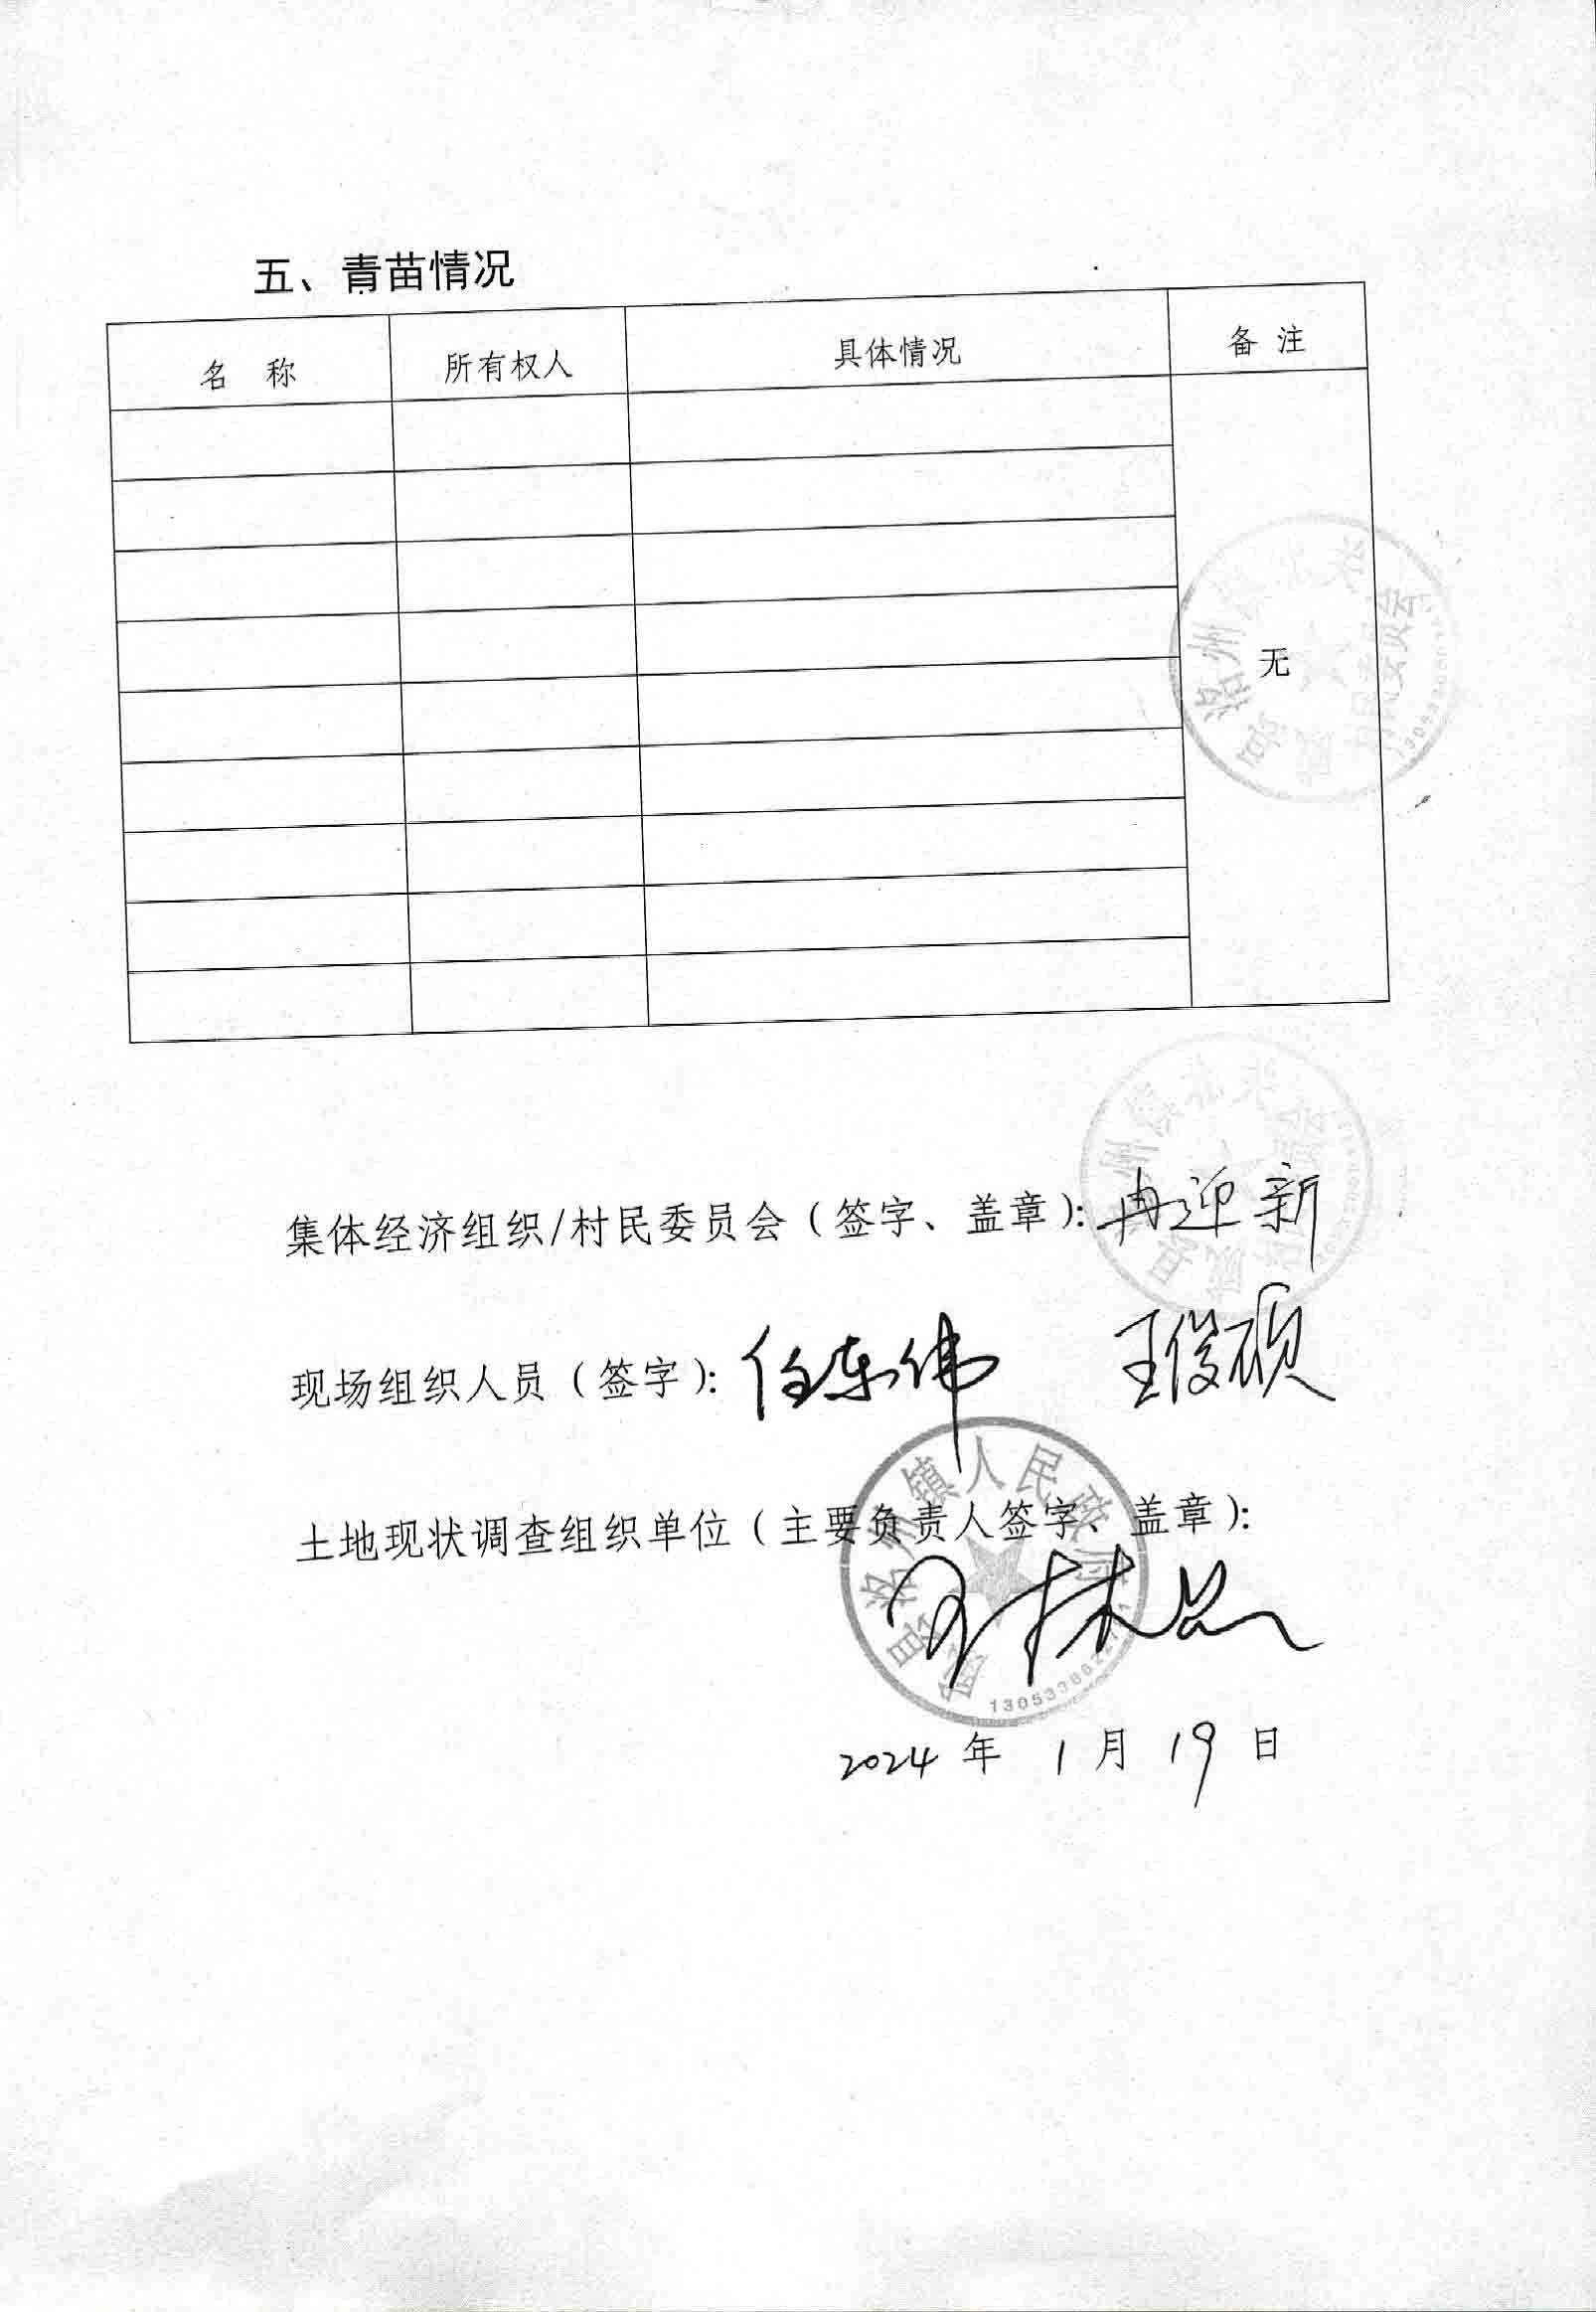 五、青苗情况
名 称 所有权人 具体情况 备 注
无
集体经济组织/村民委员会（签字、盖章）：冉迎新
现场组织人员（签字）：任东伟 王俊硕
土地现状调查组织单位（主要负责人签字、盖章）：
县洺州镇人民政府
2024 年 1 月 19 日